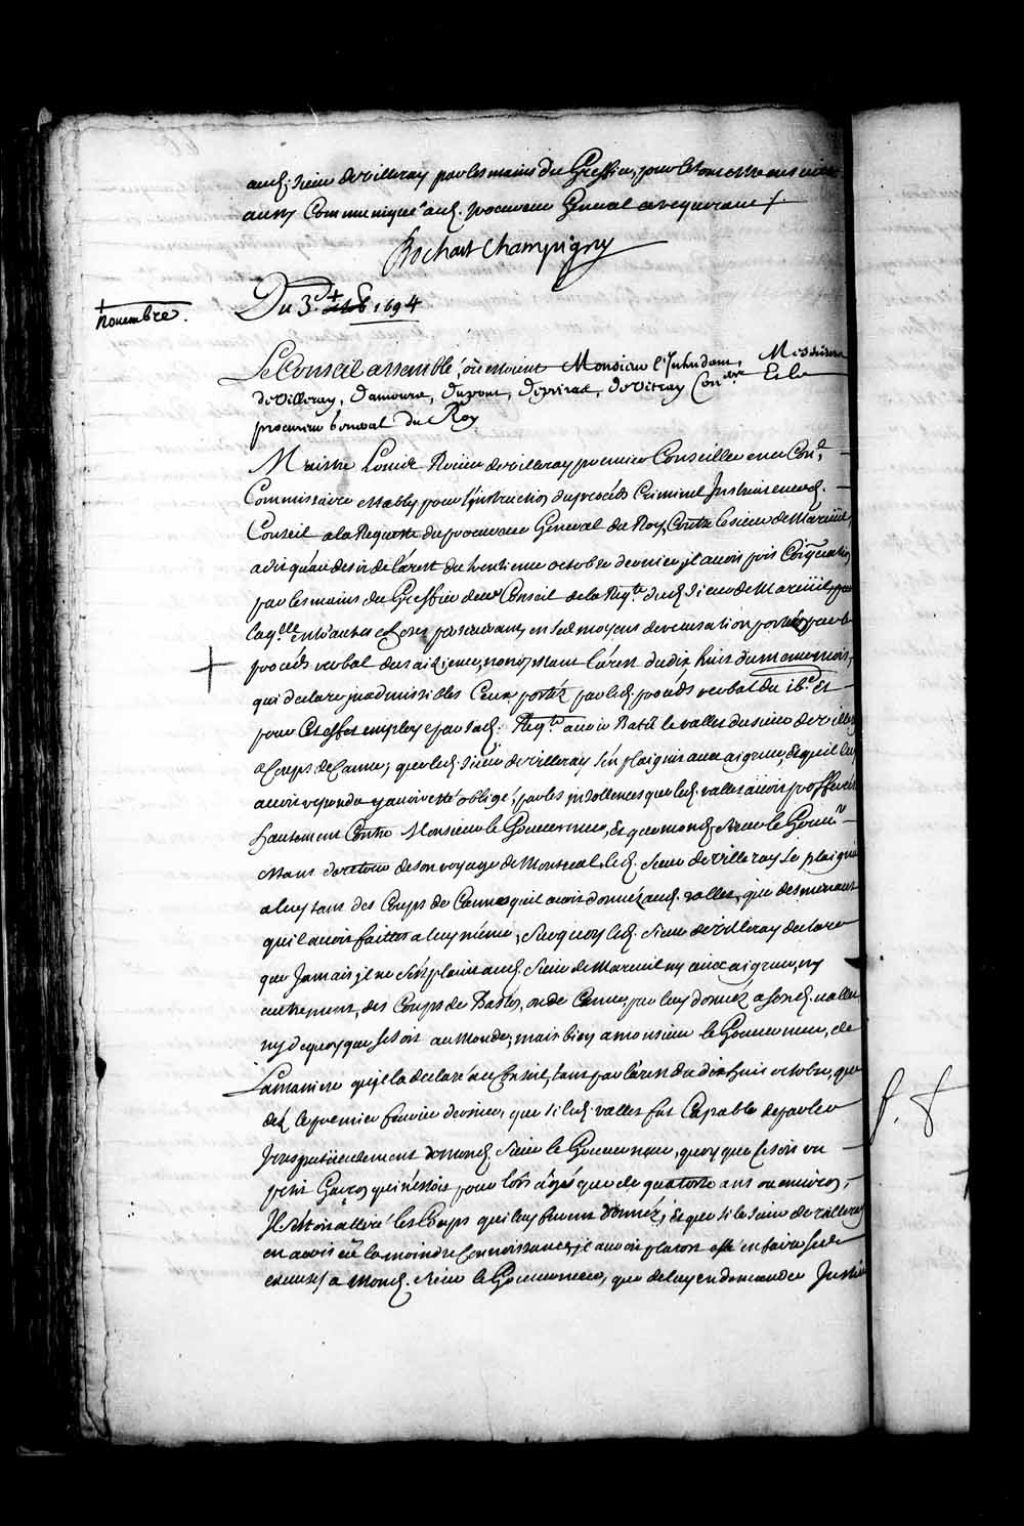 aud. Sieur devilleray par les mains du Greffier, pour
aussy Communiqué aud. procureur General ce requerant /.
Bochart Champigny
Du 3.e + octob 1694
+ nouembre.
Le Conseil assemblé, où estoient Monsieur l'Intendant, Messieurs
devilleray, damours, dupont, depeiras, devitray Con.ers Et le
procureur General du Roy
Maistre Louis Roüer devilleray premier Conseiller en ce Con.l
Commissaire estably pour l'instruction du procéds Criminel Instruit en ced.
Conseil a la Requeste du procureur General du Roy, Contre le sieur de Mareüil,
a dit qu'au desir de l'arest du trentieme octobre dernier, il auoit pris Coication
par les mains du Greffier de ce Conseil de la Req.te dud. Sieur de Mareüil, par
laq.lle entr'autres choses persistant en ses moyens de recusation portés par le
procéds verbal du seizieme, nonobstant l'arest du dix huit du mesme mois,
qui declare inadmissibles Ceux portéz par led. procéds verbal du 16.e Et
pour Cet effet employe par sad. Req.te auoir Batû le vallet du sieur devilleray
a Coups de Canne; que led. Sieur devilleray s'en plaignit auec aigreur, Et qu'il luy
auoir repondu y auoir esté obligé, par les insollences que led. vallet auoit profferées
hautement Contre Monsieur le Gouverneur, Et que mond. Sieur le Gouu.r
estant deretour de son voyage de Montreal, led. Sieur devilleray se plaignit
a luy tant des Coups de Cannes qu'il auoit donnéz aud. vallet, que des menaces
qu'il auoit faittes a luy mesme, Surquoy led. Sieur devilleray declare
que Jamais il ne s'est plaint aud. Sieur de Mareuil ny auec aigreur, ny
autrement, des Coups de Baston, ou de Canne, par luy donnéz a sond. vallet
ny de quoy que se soit au Monde; mais bien a monsieur le Gouuerneur, de
La maniere qu'il l'a declaré au Conseil, tant par l'arest du dix huit octobre, que
déz le premier feurier dernier, que si led. vallet fut Capable de parler
Irrespectueusement de mond. Sieur le Gouuerneur, quoy que se soit un
petit Garçon qui n'estoit pour lors âgé que de quatorze ans ou enuiron,
Il étoit les Coups qui luy furent donnéz, Et que si le Sieur devilleray
en auoit eû la moindre Connoissance, il auroit plutost esté en faire ses
excuses a Mond. Sieur le Gouuerneur, que de luy en demander Justice